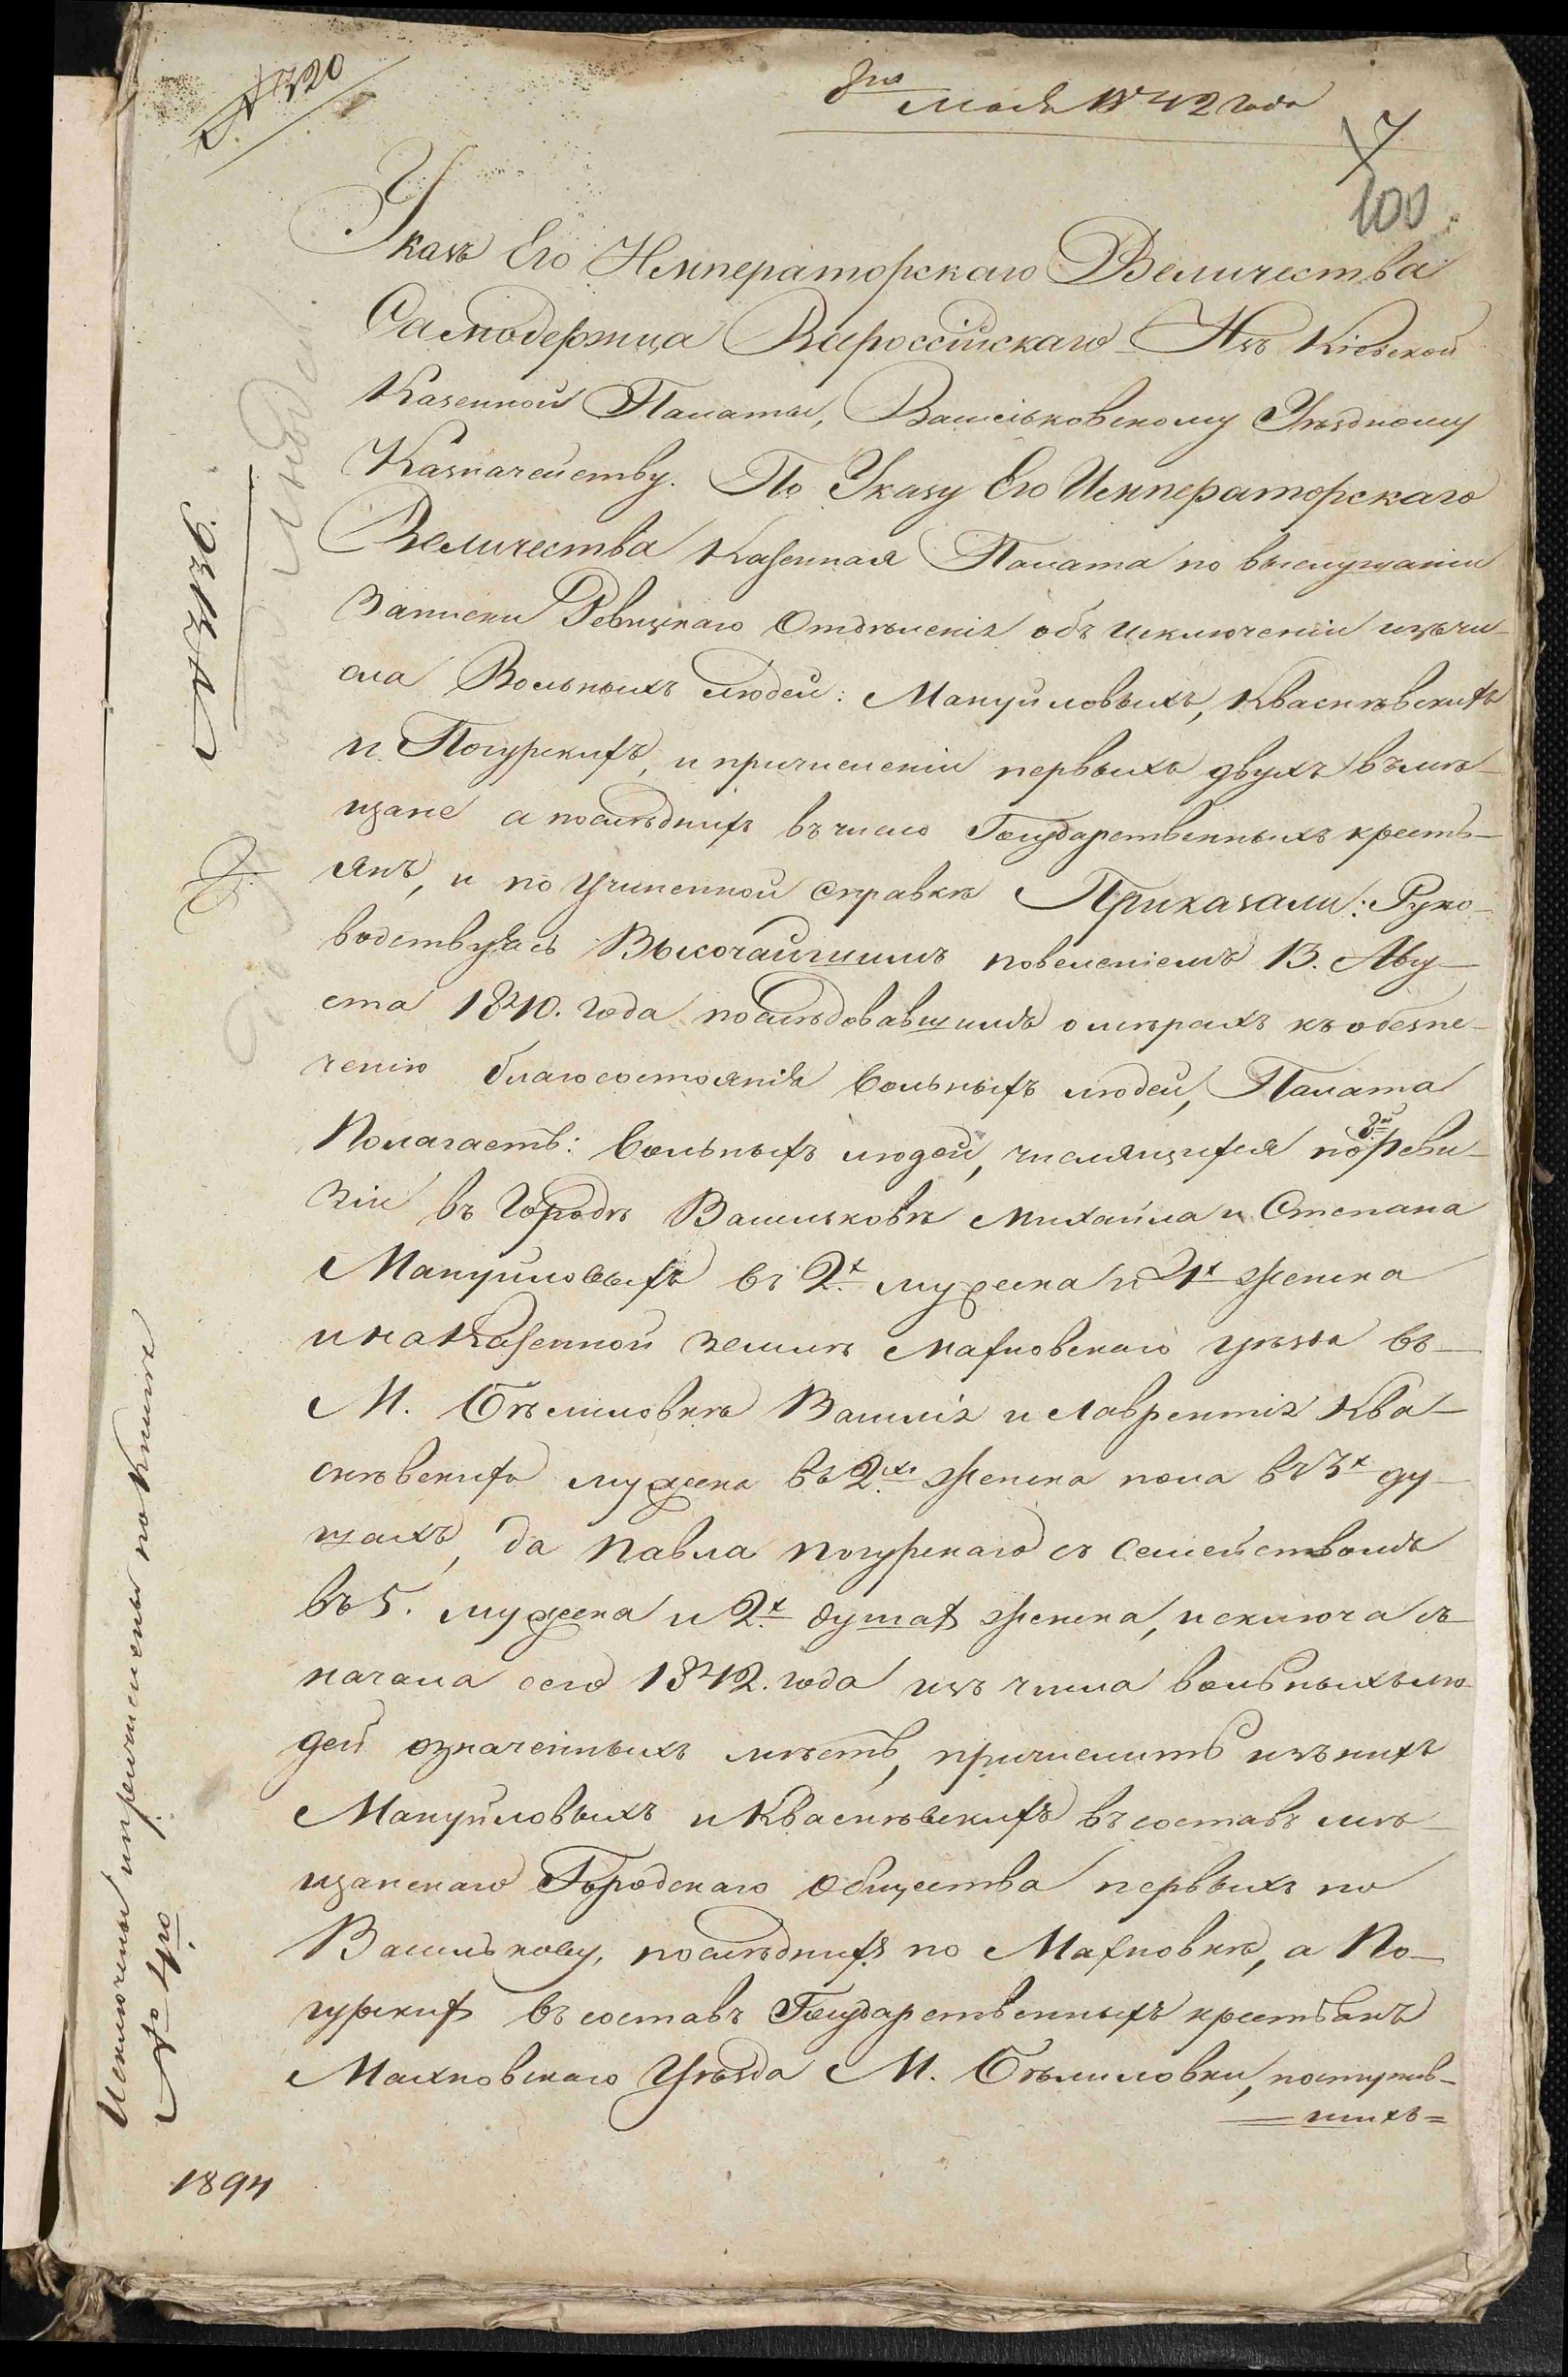 Мая 1842 года
7
100
Указъ Его Императорскаго Величества
Самодержца Всероссійскаго Изъ Кіевской
Казенной Палаты, Васильковскому Уѣздному
Казначейству. По Указу Его Императорскаго
Величества Казенная Палата по выслушаніи
записки Ревизскаго Отдѣленія объ исключеніи изъ чи-
сла Вольныхъ людей: Мануйловыхъ, Кваснѣвскихъ
и Погурскихъ, и причисленіи первыхъ двухъ въ мѣ-
щане а послѣднихъ въ число Государственныхъ кресть-
янъ, и по учиненной справкѣ Приказали: Руко-
водствуясь Высочайшимъ повеленіемъ 13. Авгу-
ста 1840. года послѣдовавшимъ о мѣрахъ къ обезпе-
ченію благосостоянія вольныхъ людей, Палата
Полагаетъ: вольныхъ людей, числящихся по 8й реви-
зіи въ городѣ Васильковѣ Михайла и Степана
Мануйловыхъ въ 2х мужеска и 4х женска
и на Казенной землѣ Махновскаго уѣзда въ
М. Бѣлиловкѣ Василія и Лаврентія Ква-
снѣвскихъ мужеска въ 2хъ женска пола въ 3х ду-
шахъ, да Павла Погурскаго съ семействомъ
въ 5. мужеска и 2х душах женска, исключа съ
начала сего 1842. года изъ числа вольныхъ лю-
дей означенныхъ мѣстъ, причислить изъ нихъ
Мануйловыхъ и Кваснѣвскихъ въ составъ мѣ-
щанскаго Городскаго Общества первыхъ по
Василькову, послѣднихъ по Махновкѣ, а По-
гурских въ составъ Государственныхъ крестьянъ
Махновскаго Уѣзда М. Бѣлиловки, поступив-
шихъ=
Исключены и причислены по книгѣ
1894